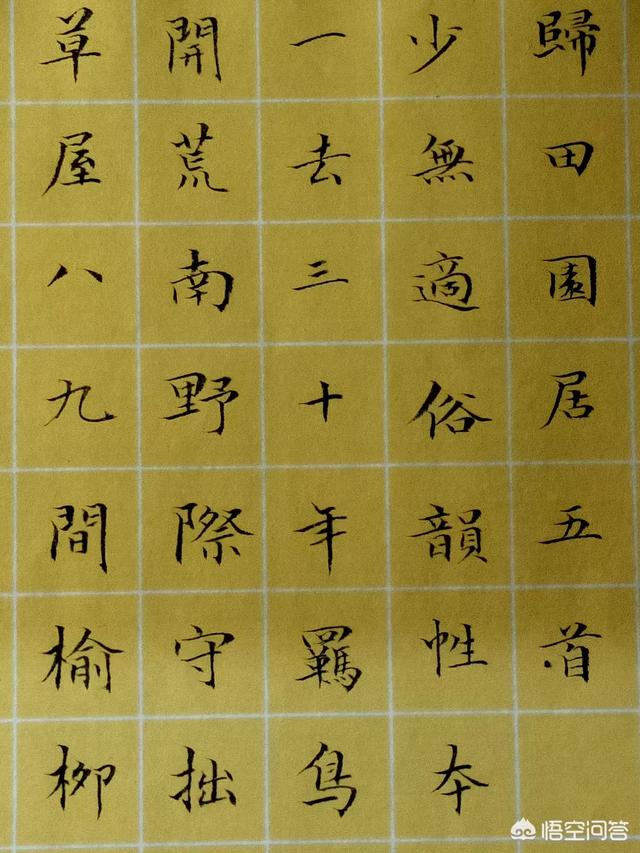 歸田園居五首
少無適俗韻性本
一去三十年羈鳥
開荒南野際守拙
草屋八九間榆柳
悟空问答